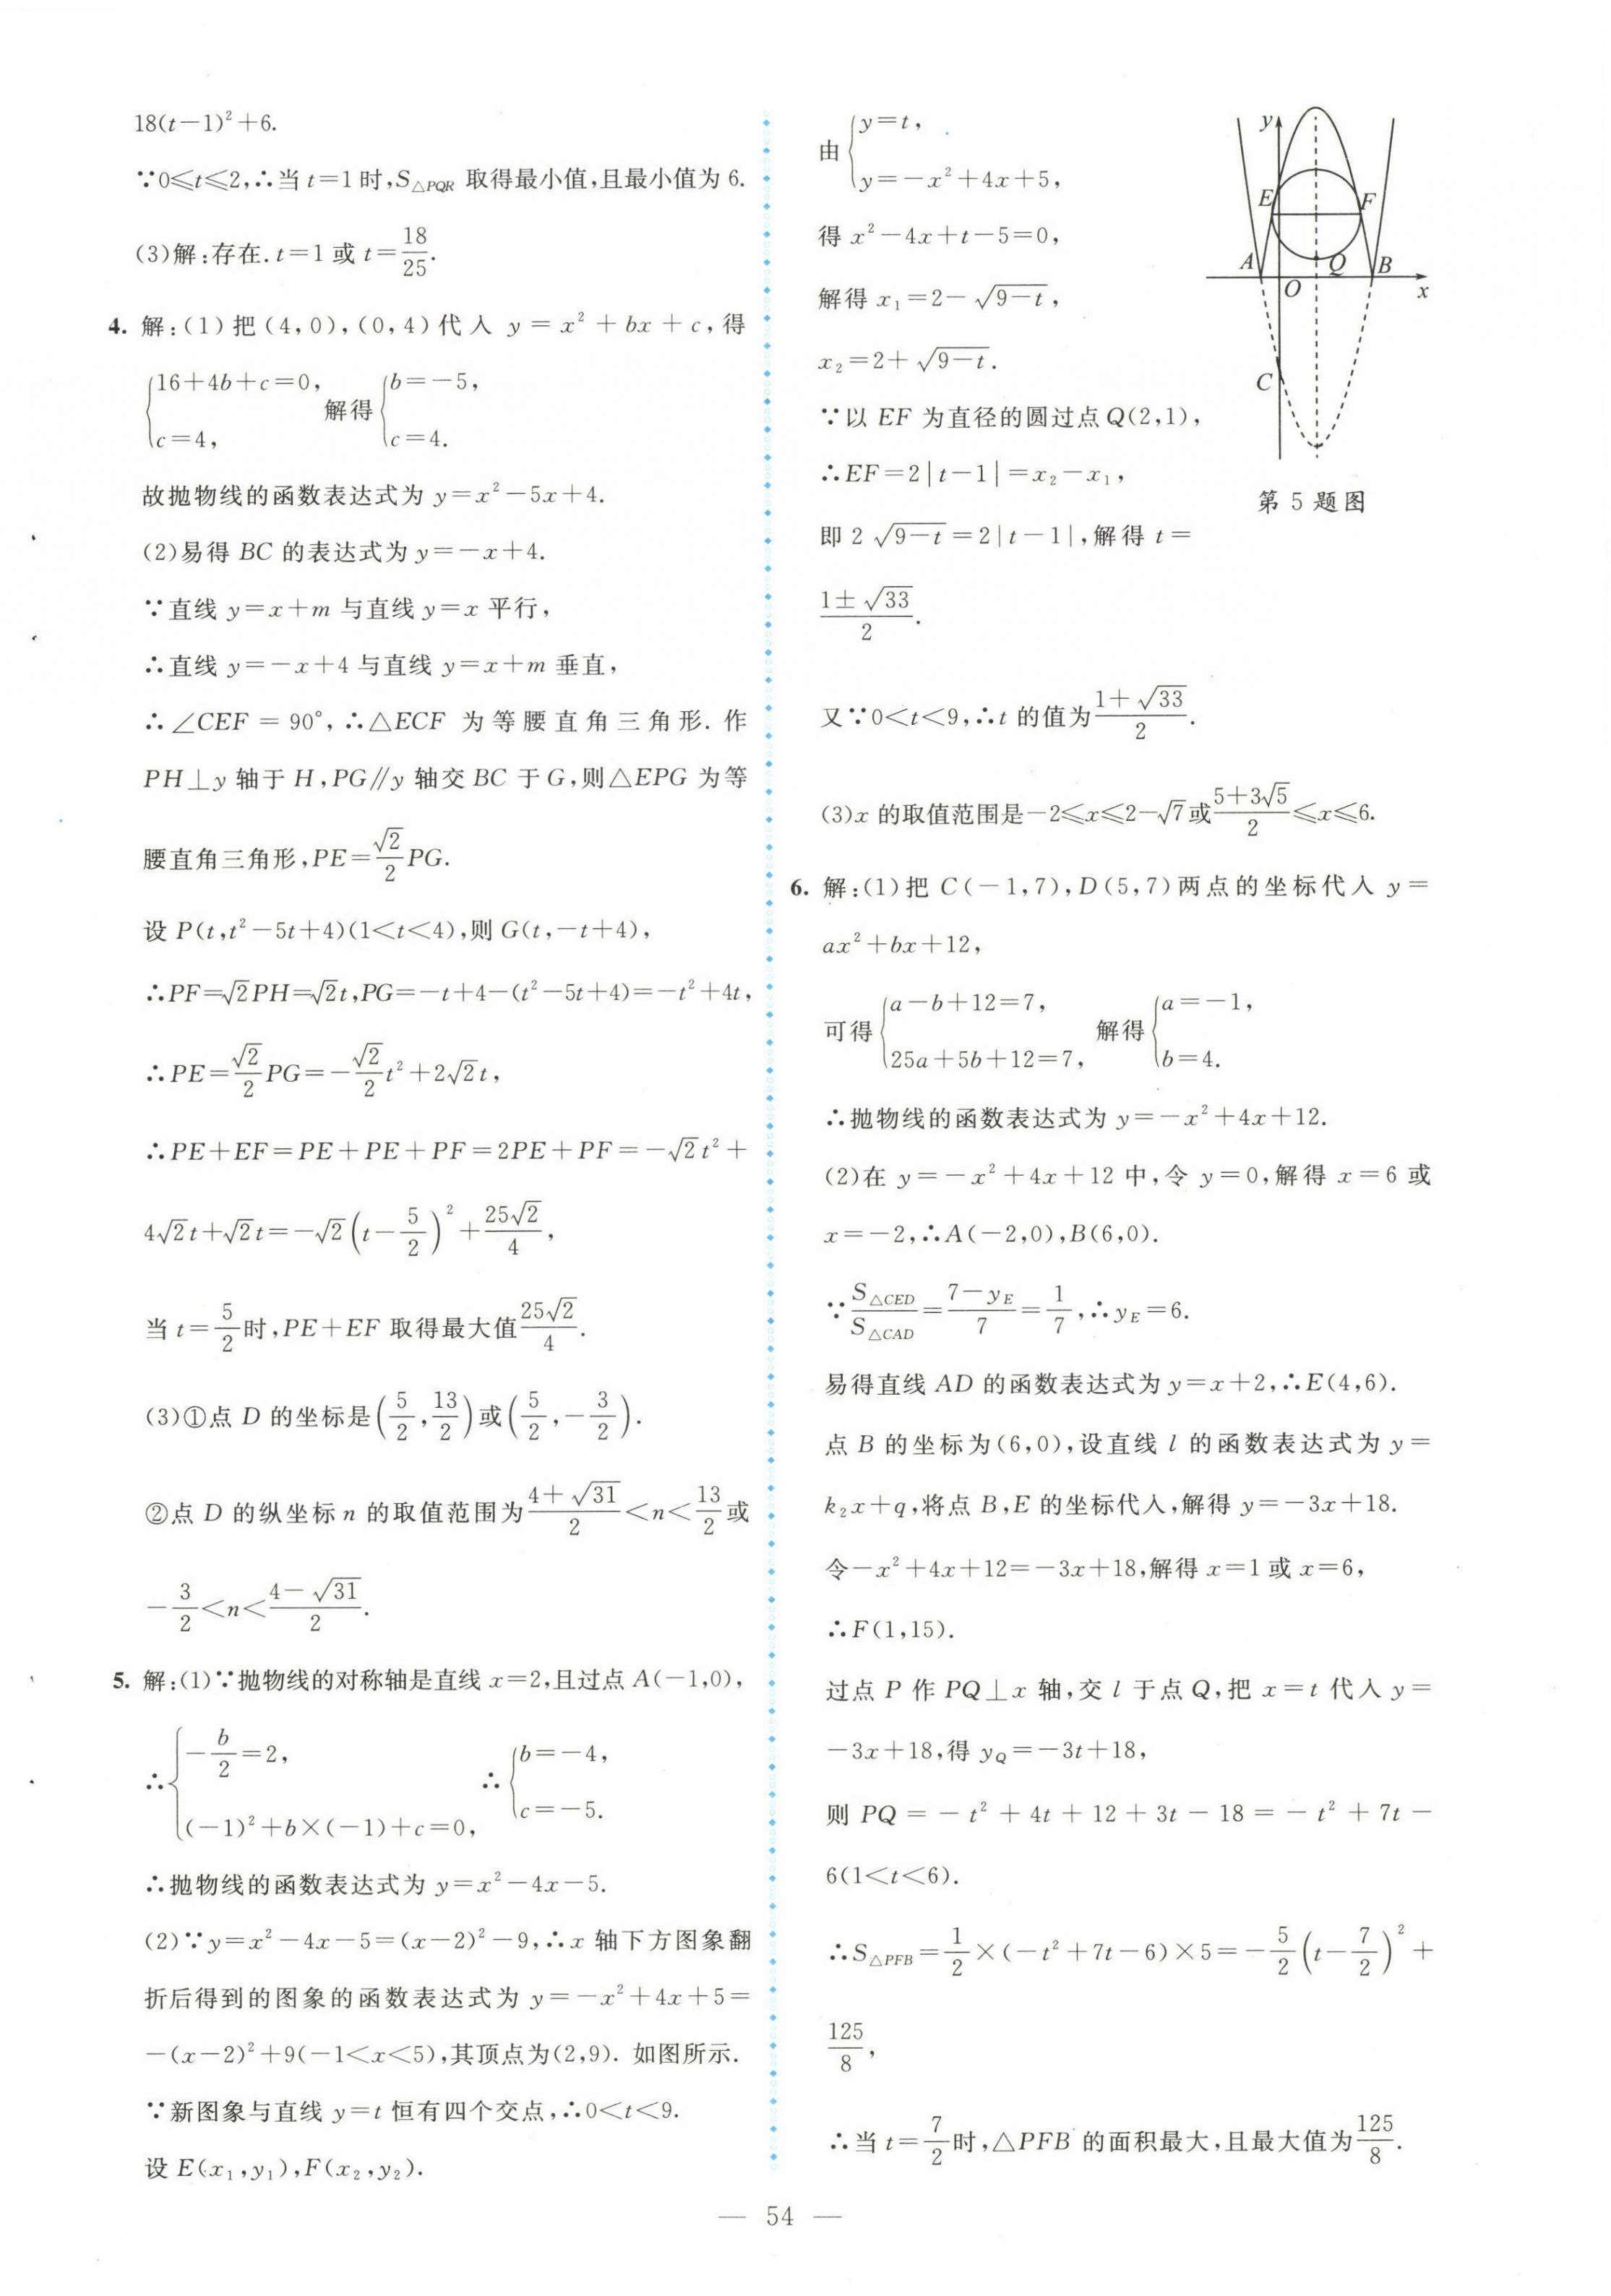 18(t−1)²+6.
∵0≤t≤2,∴当 t=1 时,S△PQR 取得最小值,且最小值为 6.
(3)解:存在. t=1 或 t=18/25.
4. 解:(1)把(4,0),(0,4)代入 y=x²+bx+c,得
{16+4b+c=0, c=4, 解得 {b=−5, c=4.
故抛物线的函数表达式为 y=x²−5x+4.
(2)易得 BC 的表达式为 y=−x+4.
∵直线 y=x+m 与直线 y=x 平行,
∴直线 y=−x+4 与直线 y=x+m 垂直,
∴∠CEF=90°,∴△ECF 为等腰直角三角形. 作
PH⊥y 轴于 H,PG∥y 轴交 BC 于 G,则△EPG 为等
腰直角三角形,PE=√2/2 PG.
设 P(t,t²−5t+4)(1<t<4),则 G(t,−t+4),
∴PF=√2PH=√2t,PG=−t+4−(t²−5t+4)=−t²+4t,
∴PE=√2/2 PG=−√2/2 t²+2√2t,
∴PE+EF=PE+PE+PF=2PE+PF=−√2t²+
4√2t+√2t=−√2(t−5/2)²+25√2/4,
当 t=5/2时,PE+EF 取得最大值25√2/4.
(3)①点 D 的坐标是(5/2,13/2)或(5/2,−3/2).
②点 D 的纵坐标 n 的取值范围为(4+√31)/2<n<13/2或
−3/2<n<(4−√31)/2.
5. 解:(1)∵抛物线的对称轴是直线 x=2,且过点 A(−1,0),
∴{−b/2=2, (−1)²+b×(−1)+c=0, ∴{b=−4, c=−5.
∴抛物线的函数表达式为 y=x²−4x−5.
(2)∵y=x²−4x−5=(x−2)²−9,∴x 轴下方图象翻
折后得到的图象的函数表达式为 y=−x²+4x+5=
−(x−2)²+9(−1<x<5),其顶点为(2,9). 如图所示.
∵新图象与直线 y=t 恒有四个交点,∴0<t<9.
设 E(x₁,y₁),F(x₂,y₂).
由{y=t, y=−x²+4x+5,
得 x²−4x+t−5=0,
解得 x₁=2−√(9−t),
x₂=2+√(9−t).
∵以 EF 为直径的圆过点 Q(2,1),
∴EF=2|t−1|=x₂−x₁,
即 2√(9−t)=2|t−1|,解得 t=
(1±√33)/2.
y
E
F
A
Q
B
O
x
C
第 5 题图
又∵0<t<9,∴t 的值为(1+√33)/2.
(3)x 的取值范围是−2≤x≤2−√7或(5+3√5)/2≤x≤6.
6. 解:(1)把 C(−1,7),D(5,7)两点的坐标代入 y=
ax²+bx+12,
可得{a−b+12=7, 25a+5b+12=7, 解得{a=−1, b=4.
∴抛物线的函数表达式为 y=−x²+4x+12.
(2)在 y=−x²+4x+12 中,令 y=0,解得 x=6 或
x=−2,∴A(−2,0),B(6,0).
∵S△CED/S△CAD=(7−yE)/7=1/7,∴yE=6.
易得直线 AD 的函数表达式为 y=x+2,∴E(4,6).
点 B 的坐标为(6,0),设直线 l 的函数表达式为 y=
k₂x+q,将点 B,E 的坐标代入,解得 y=−3x+18.
令−x²+4x+12=−3x+18,解得 x=1 或 x=6,
∴F(1,15).
过点 P 作 PQ⊥x 轴,交 l 于点 Q,把 x=t 代入 y=
−3x+18,得 yQ=−3t+18,
则 PQ=−t²+4t+12+3t−18=−t²+7t−
6(1<t<6).
∴S△PFB=1/2×(−t²+7t−6)×5=−5/2(t−7/2)²+
125/8,
∴当 t=7/2时,△PFB 的面积最大,且最大值为125/8.
— 54 —